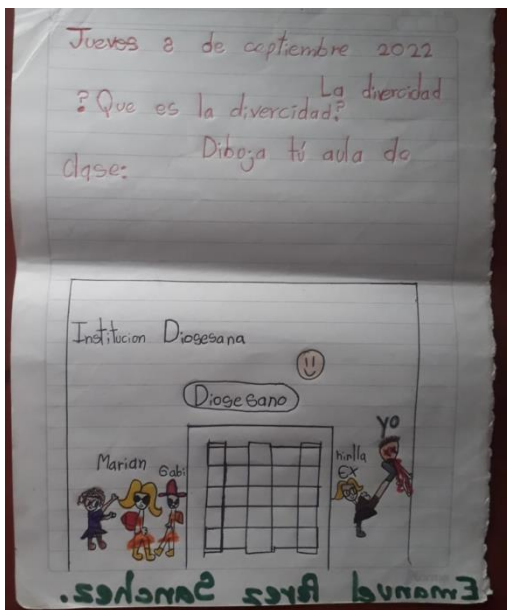 Jueves 8 de ceptiembre 2022
La divercidad
?Que es la divercidad?
Diboja tú aula de
clase:
Institucion Diogesana
Diogesano
yo
Marian Gabi
EX
Emanuel Perez Sanchez.